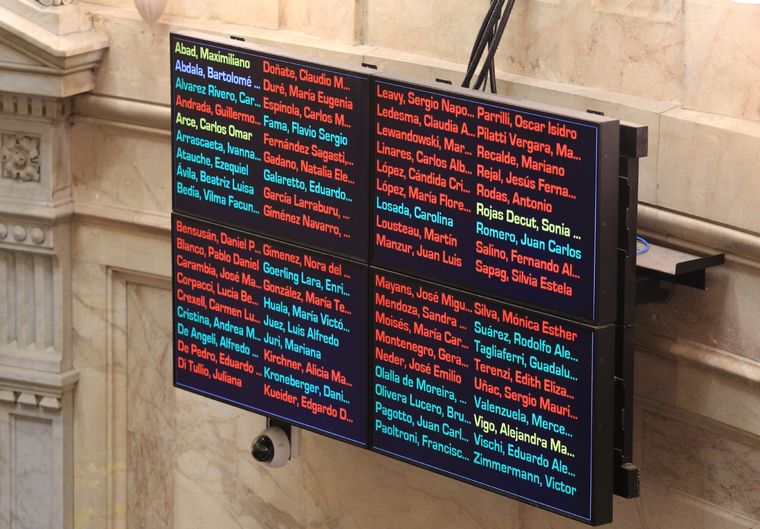 Abad, Maximiliano
Abdala, Bartolomé ...
Alvarez Rivero, Car...
Andrada, Guillermo...
Arce, Carlos Omar
Arrascaeta, Ivanna...
Atauche, Ezequiel
Ávila, Beatriz Luisa
Bedia, Vilma Facun...
Doñate, Claudio M...
Duré, María Eugenia
Espínola, Carlos M...
Fama, Flavio Sergio
Fernández Sagasti,...
Gadano, Natalia Ele...
Galaretto, Eduardo...
García Larraburu, ...
Giménez Navarro, ...
Leavy, Sergio Napo...
Ledesma, Claudia A...
Lewandowski, Mar...
Linares, Carlos Alb...
López, Cándida Cri...
López, María Flore...
Losada, Carolina
Lousteau, Martín
Manzur, Juan Luis
Parrilli, Oscar Isidro
Pilatti Vergara, Ma...
Recalde, Mariano
Rejal, Jesús Ferna...
Rodas, Antonio
Rojas Decut, Sonia ...
Romero, Juan Carlos
Salino, Fernando Al...
Sapag, Silvia Estela
Bensusán, Daniel P...
Blanco, Pablo Daniel
Carambia, José Ma...
Corpacci, Lucía Be...
Crexell, Carmen Lu...
Cristina, Andrea M...
De Angeli, Alfredo ...
De Pedro, Eduardo ...
Di Tullio, Juliana
Gimenez, Nora del ...
Goerling Lara, Enri...
González, María Te...
Huala, María Victó...
Juez, Luis Alfredo
Juri, Mariana
Kirchner, Alicia Ma...
Kroneberger, Dani...
Kueider, Edgardo D...
Mayans, José Migu...
Mendoza, Sandra ...
Moisés, María Car...
Montenegro, Gera...
Neder, José Emilio
Olalla de Moreira, ...
Olivera Lucero, Bru...
Pagotto, Juan Carl...
Paoltroni, Francisc...
Silva, Mónica Esther
Suárez, Rodolfo Ale...
Tagliaferri, Guadalu...
Terenzi, Edith Eliza...
Uñac, Sergio Mauri...
Valenzuela, Merce...
Vigo, Alejandra Ma...
Vischi, Eduardo Ale...
Zimmermann, Víctor